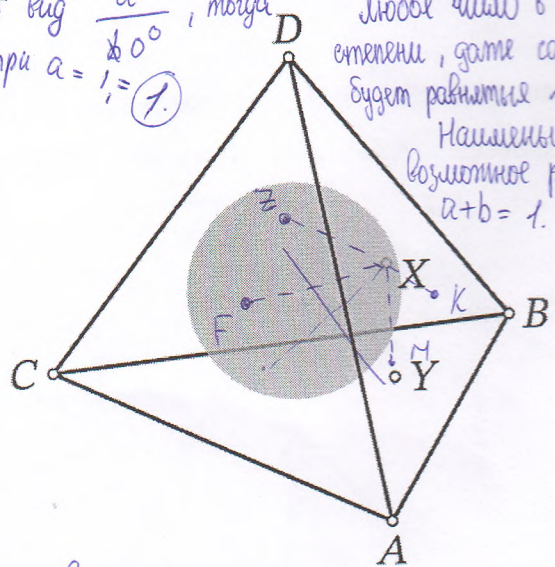 вид a / 60°, тогда
при a = 1, = 1.
любое число в
степени, даже со
будет равняться
Наименьш
возможное р
a+b = 1.
D
Z
X
K
F
B
M
C
Y
A